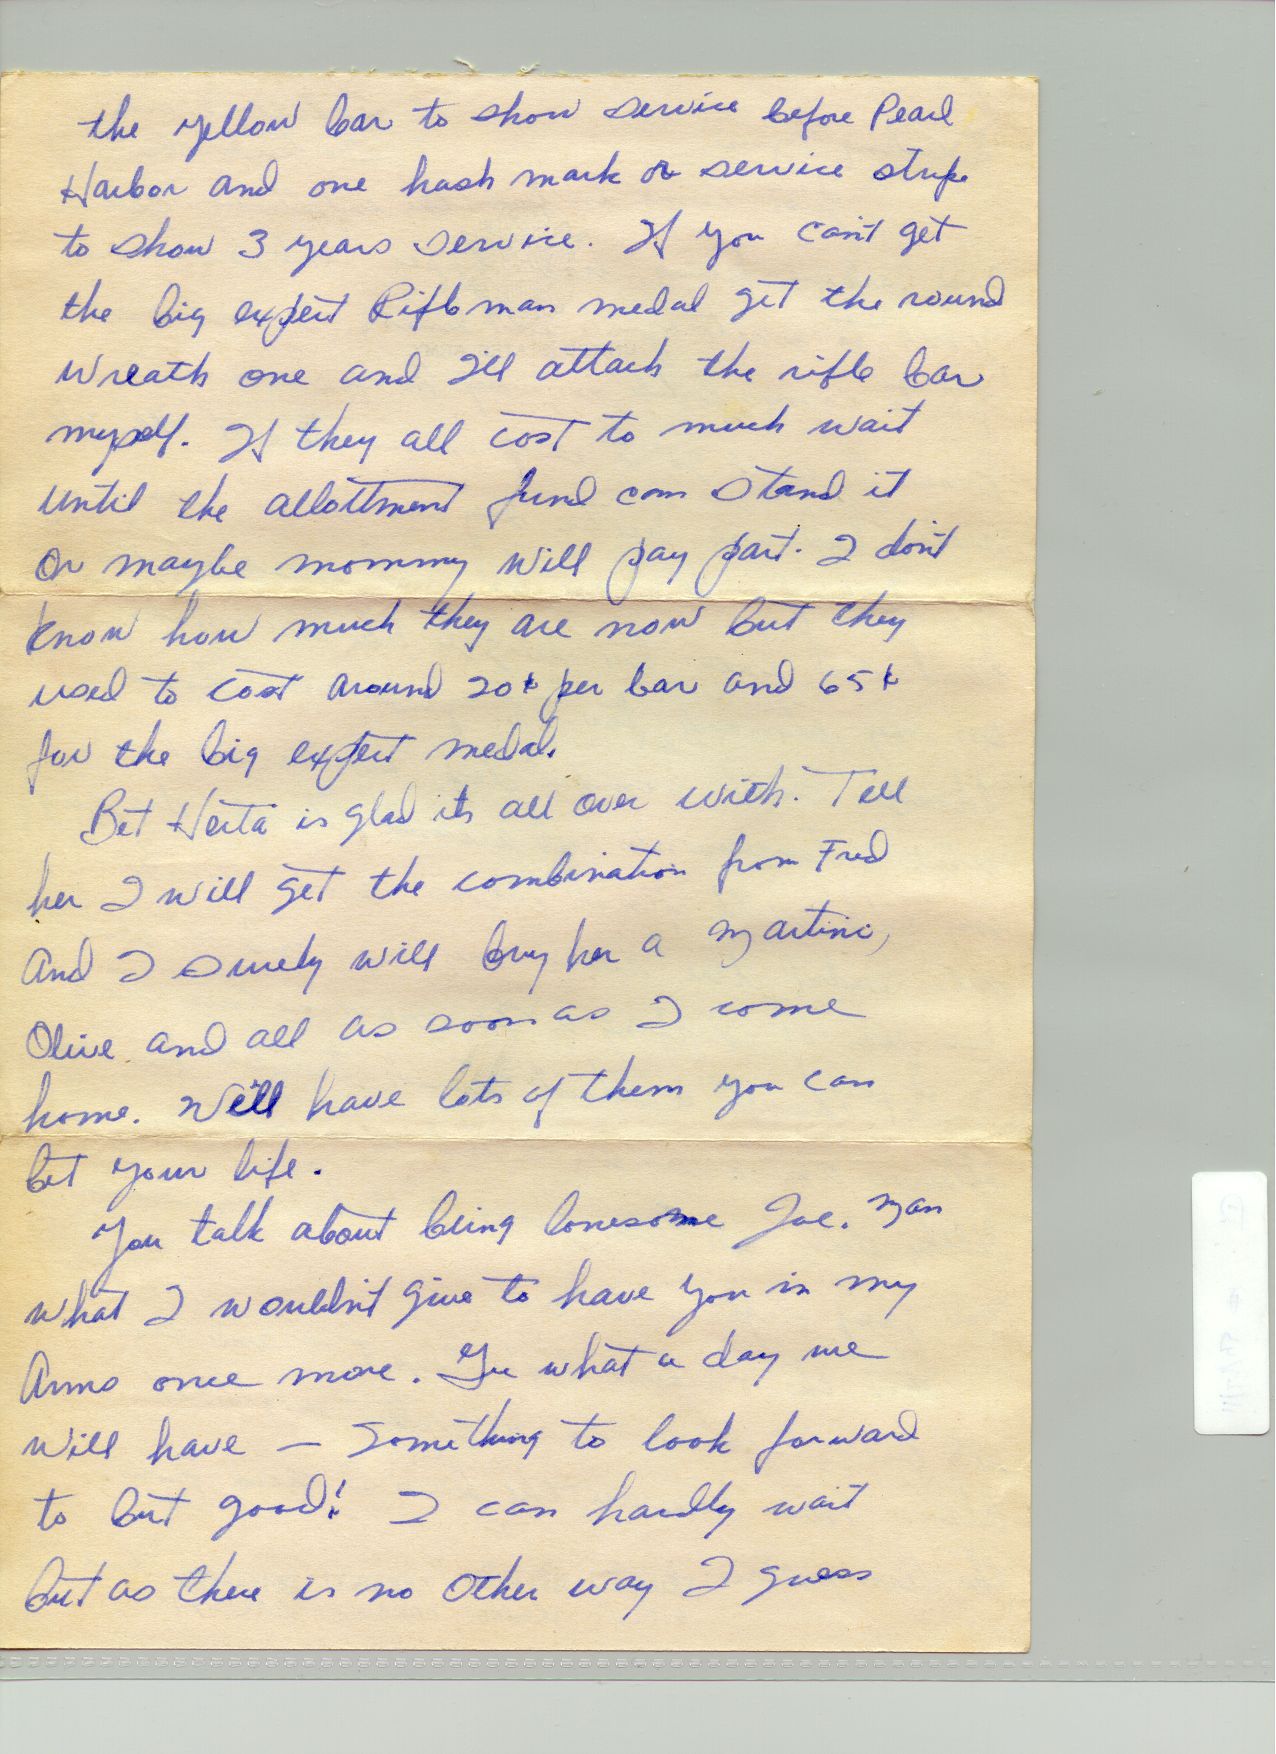 the yellow bar to show service before Pearl
Harbor and one hash mark or service stripe
to show 3 years service. If you can't get
the big expert Rifleman medal get the round
wreath one and I'll attach the rifle bar
myself. If they all cost to much wait
until the allottment fund can stand it
Or maybe mommy will pay part. I don't
know how much they are now but they
used to cost around 20¢ per bar and 65¢
for the big expert medal.
Bet Herta is glad its all over with. Tell
her I will get the combination from Fred
and I surely will buy her a Martini,
Olive and all as soon as I come
home. We'll have lots of them you can
bet your life.
You talk about being lonesome Joe. Man
what I wouldn't give to have you in my
Arms once more. Gee what a day we
will have — Something to look forward
to but good! I can hardly wait
but as there is no other way I guess